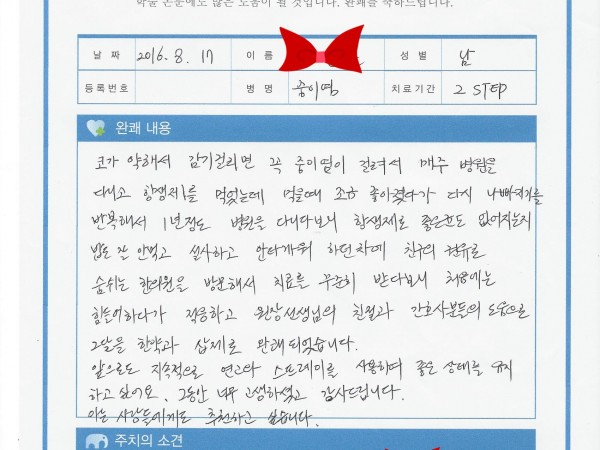 학술 논문에도 많은 도움이 될 것입니다. 완쾌를 축하드립니다.
날 짜 2016. 8. 17 이 름 성 별 남
등록번호 병 명 중이염 치료기간 2 STEP
완쾌 내용
코가 약해서 감기걸리면 꼭 중이염이 걸려서 매주 병원을
다니고 항생제를 먹었는데 먹을때 조금 좋아졌다가 다시 나빠지기를
반복해서 1년정도 병원을 다니다보니 항생제로 좋은균도 없어지는지
밥도 잘 안먹고 설사하고 안타까워 하던차에 친구의 권유로
숨쉬는 한의원을 방문해서 치료를 꾸준히 받다보니 처음에는
힘들어하다가 적응하고 원장선생님의 친절과 간호사분들의 도움으로
2달을 한약과 삽제로 완쾌되었습니다.
앞으로도 지속적으로 연고와 스프레이를 사용하며 좋은 상태를 유지
하고 싶어요. 그동안 너무 고생하셨고 감사드립니다.
아는 사람들에게도 추천하고 싶습니다.
주치의 소견